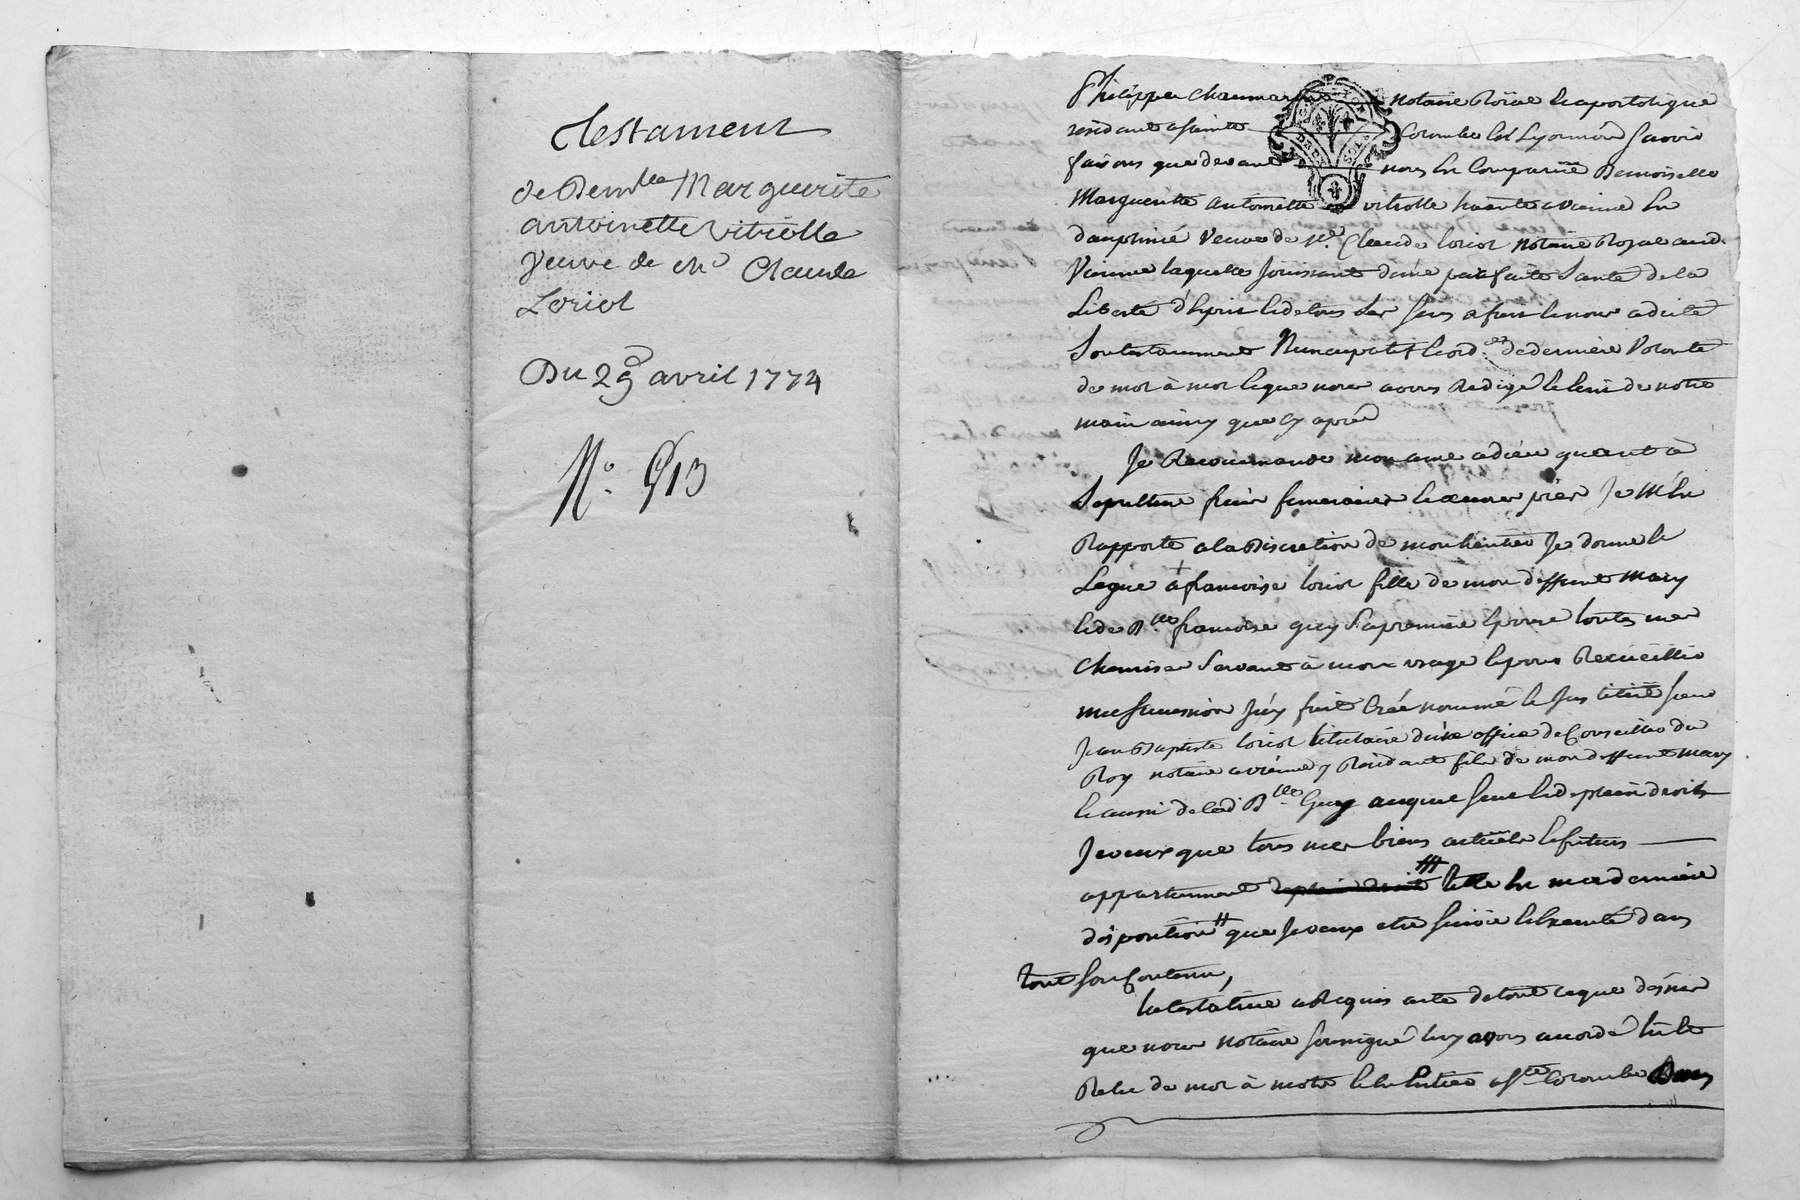 Testament
de Demlle Marguerite
antoinette vitrolle
veuve de Me Claude
Loriol
Du 29 avril 1774
No. 513
Philippe Chaumartin notaire Royal & apostolique
residant a sainte Colombe les Lyon sçavoir
faisons que devant nous est comparüe Demoiselle
Marguerite antoinette vitrolle habitante a vienne en
dauphiné veuve de Me. Claude loriol notaire Royal aud.
Vienne laquelle Jouissant d'une parfaite santé de la
Liberté d'esprit & de tous ses sens a fait & nous a dicté
son testament Nuncupatif & ord. de derniere volonté
de mot à mot & que nous avons redigé & ecrit de notre
main ainsy que cy aprés
Je Recommande mon ame a dieu quant à
Sepulture frais funeraires & œuvres pies Je m'en
Rapporte a la Discretion de mon heritier Je donne &
Legue a françoise loriol fille de mon deffunt mary
& de Dlle françoise guy sa premiere epouse toutes mes
chemises servant à mon usage & pour Recueillir
ma succession J'ay fait créé nommé & Institué sieur
Jean Baptiste loriol titulaire d'un office de Conseiller du
Roy notaire a vienne y Residant fils de mon deffunt mary
& aussi de lad. Dlle. Guy auquel seul & de plein droit
Je veux que tous mes biens actuels & futurs
appartiennent de plein droit telle est ma derniere
disposition que Je veux etre suivie & executé dans
tout son Contenu,
la testatrice a Requis acte de tout ce que dessus
que nous notaire soussigné luy avons accordé lu &
Relu de mot à mot & en entier a Ste Colombe Dans